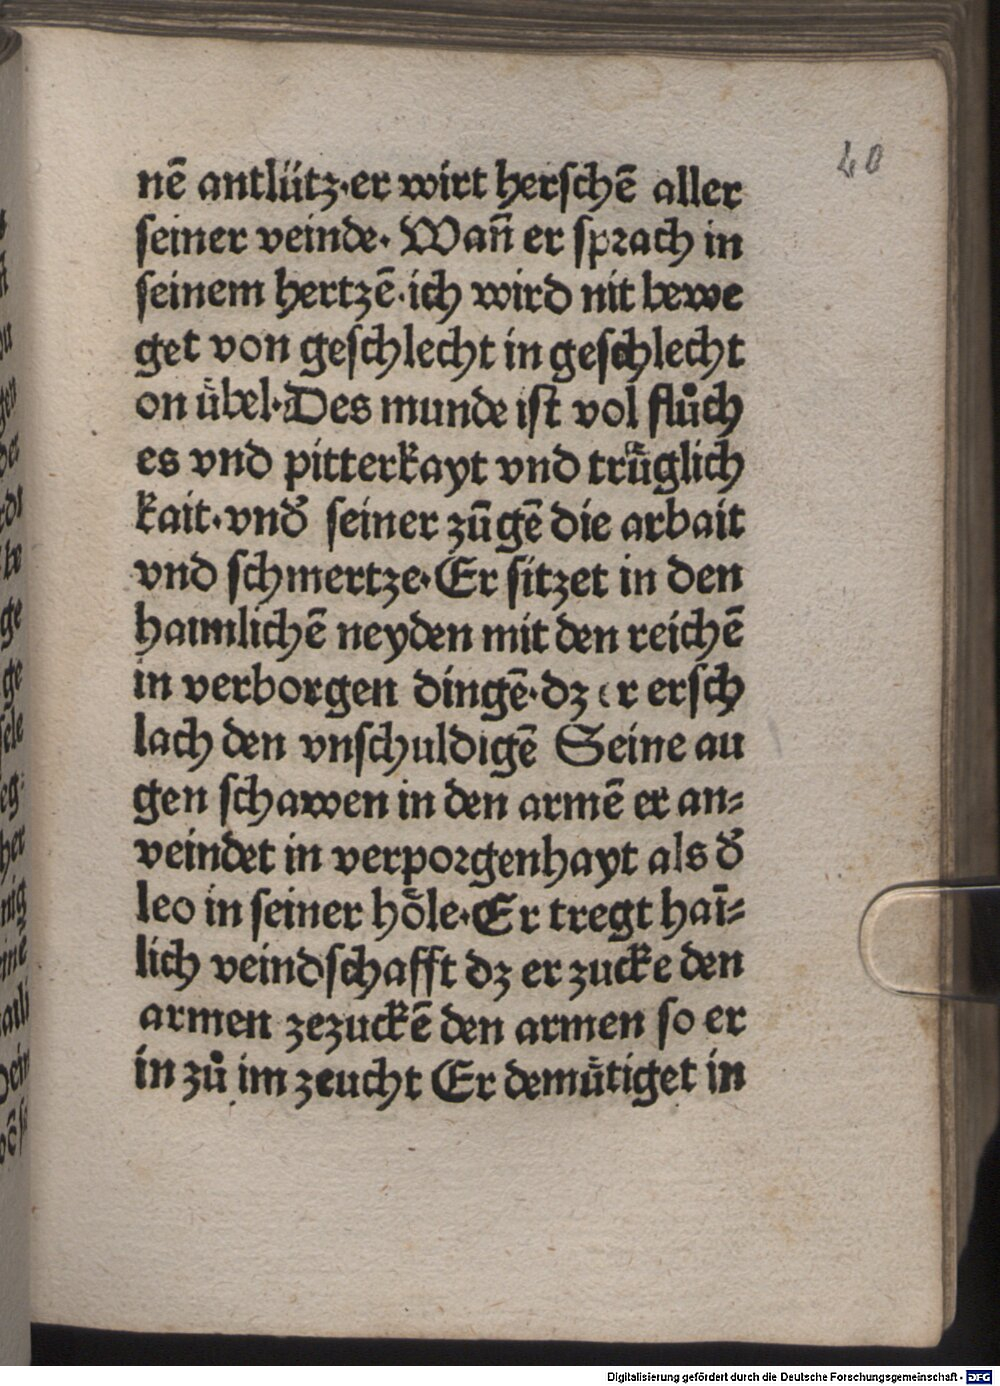 40
nē antlütz·er wirt herschē aller
seiner veinde· Wañ er sprach in
seinem hertzē·ich wird nit bewe
get von geschlecht in geschlecht
on uͤbel·Des munde ist vol fluͦch
es vnd pitterkayt vnd truͤglich
kait·vnd' seiner zūgē die arbait
vnd schmertze·Er sitzet in den
haimlichē neyden mit den reichē
in verborgen dingē·dz er ersch
lach den vnschuldigē Seine au
gen schawen in den armē er an⸗
veindet in verporgenhayt als d'
leo in seiner hoͤle·Er tregt haī⸗
lich veindschafft dz er zucke den
armen zezuckē den armen so er
in zuͦ im zeucht Er demuͤtiget in
Digitalisierung gefördert durch die Deutsche Forschungsgemeinschaft - DFG